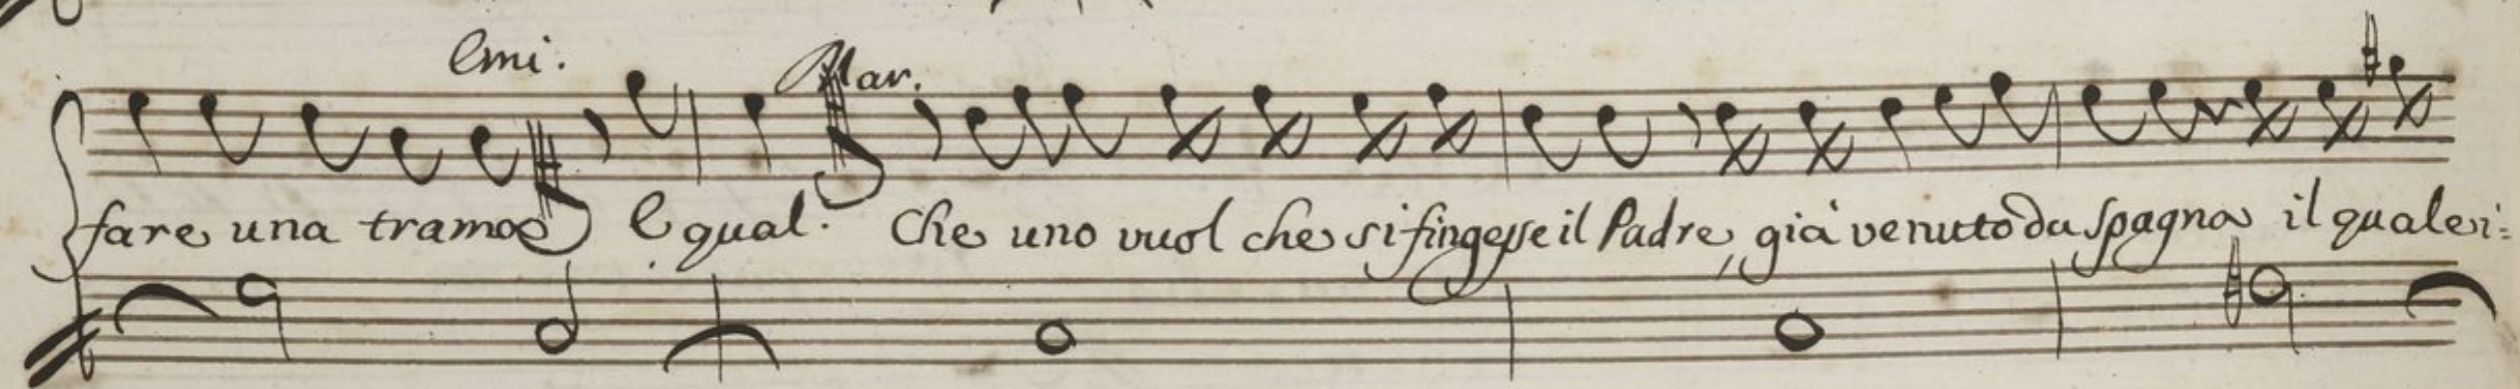 Emi. Mar.
fare una trama E qual. Che uno vuol che si fingesse il Padre, già venuto da Spagna il quale ri: